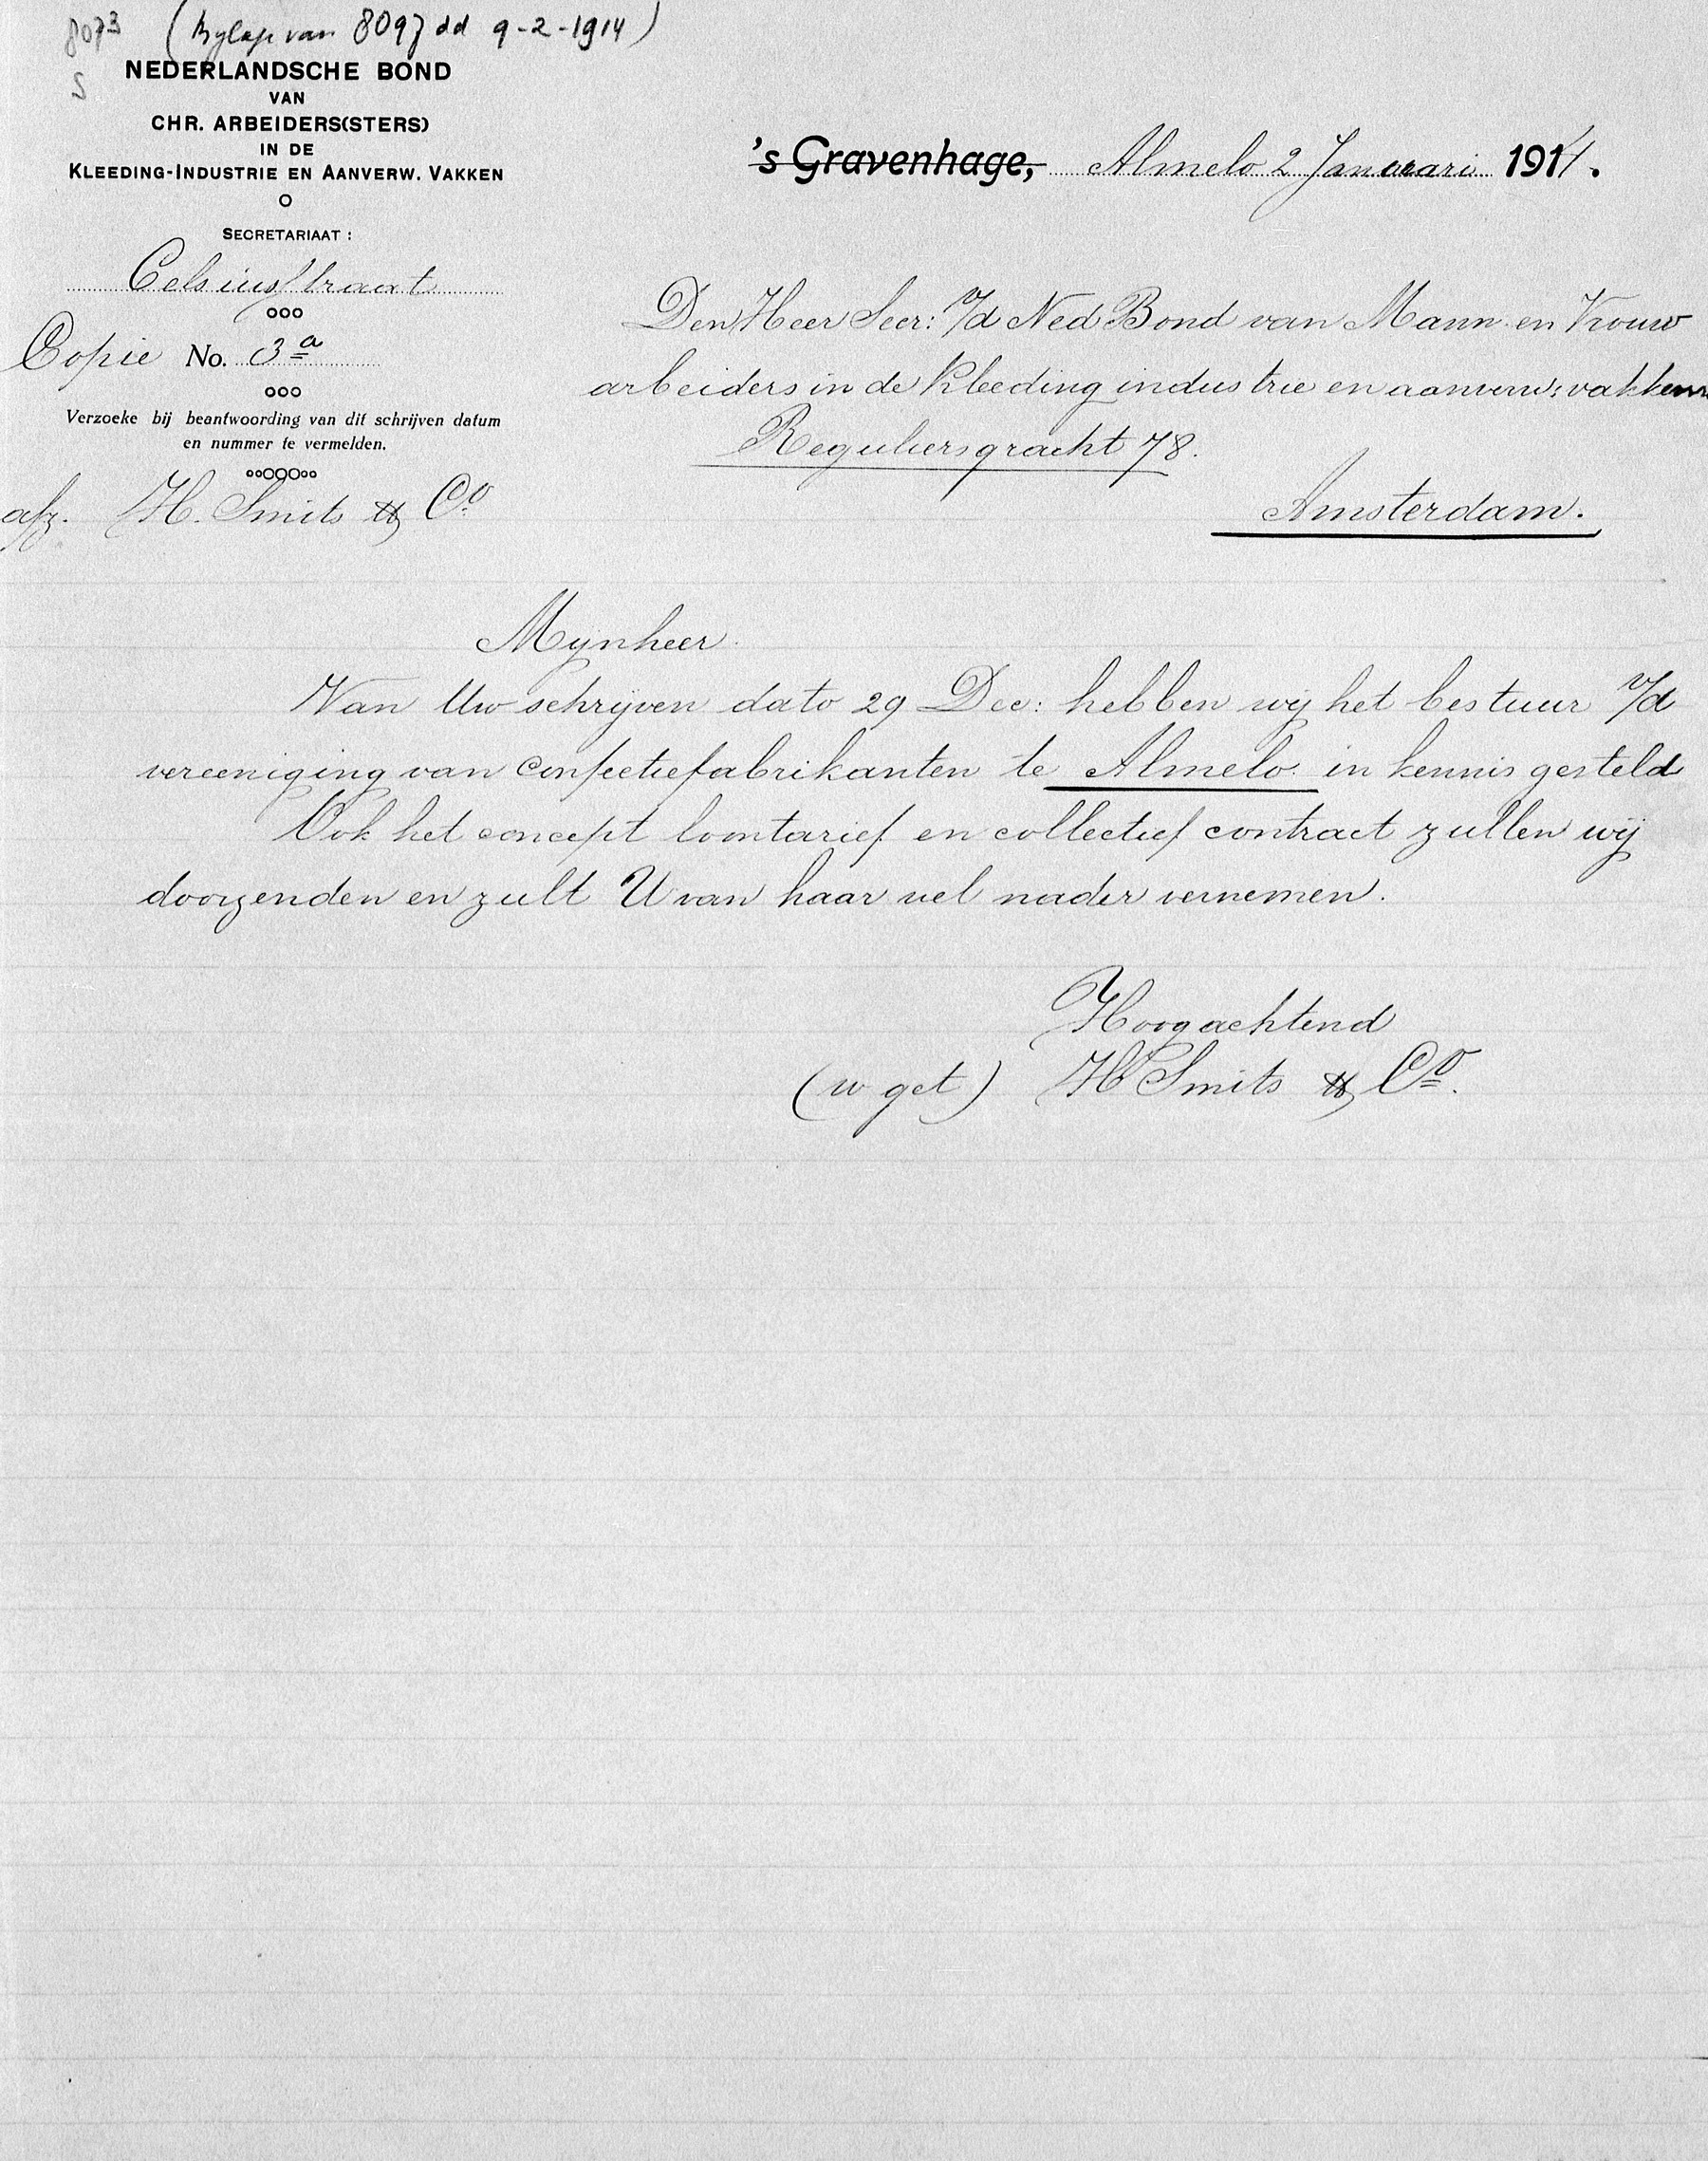 8073 (Bylage van 8097 dd 9-2-1914)
S
NEDERLANDSCHE BOND
VAN
CHR. ARBEIDERS(STERS)
IN DE
KLEEDING-INDUSTRIE EN AANVERW. VAKKEN
SECRETARIAAT:
Celsiusstraat
Copie No. 3a
Verzoeke bij beantwoording van dit schrijven datum
en nummer te vermelden.
afz. H. Smits & Co
's Gravenhage, Almelo 2 Januari 1914.
Den Heer Secr: v/d Ned Bond van Mann en Vrouw
arbeiders in de kleeding industrie en aanverw: vakken
Reguliersgracht 78.
Amsterdam.
Mynheer.
Van Uw schrijven dato 29 Dec: hebben wij het bestuur v/d
vereeniging van confectiefabrikanten te Almelo. in kennis gesteld
Ook het concept loontarief en collectief contract zullen wij
doorzenden en zult U van haar wel nader vernemen.
Hoogachtend
(w get) H Smits & Co.